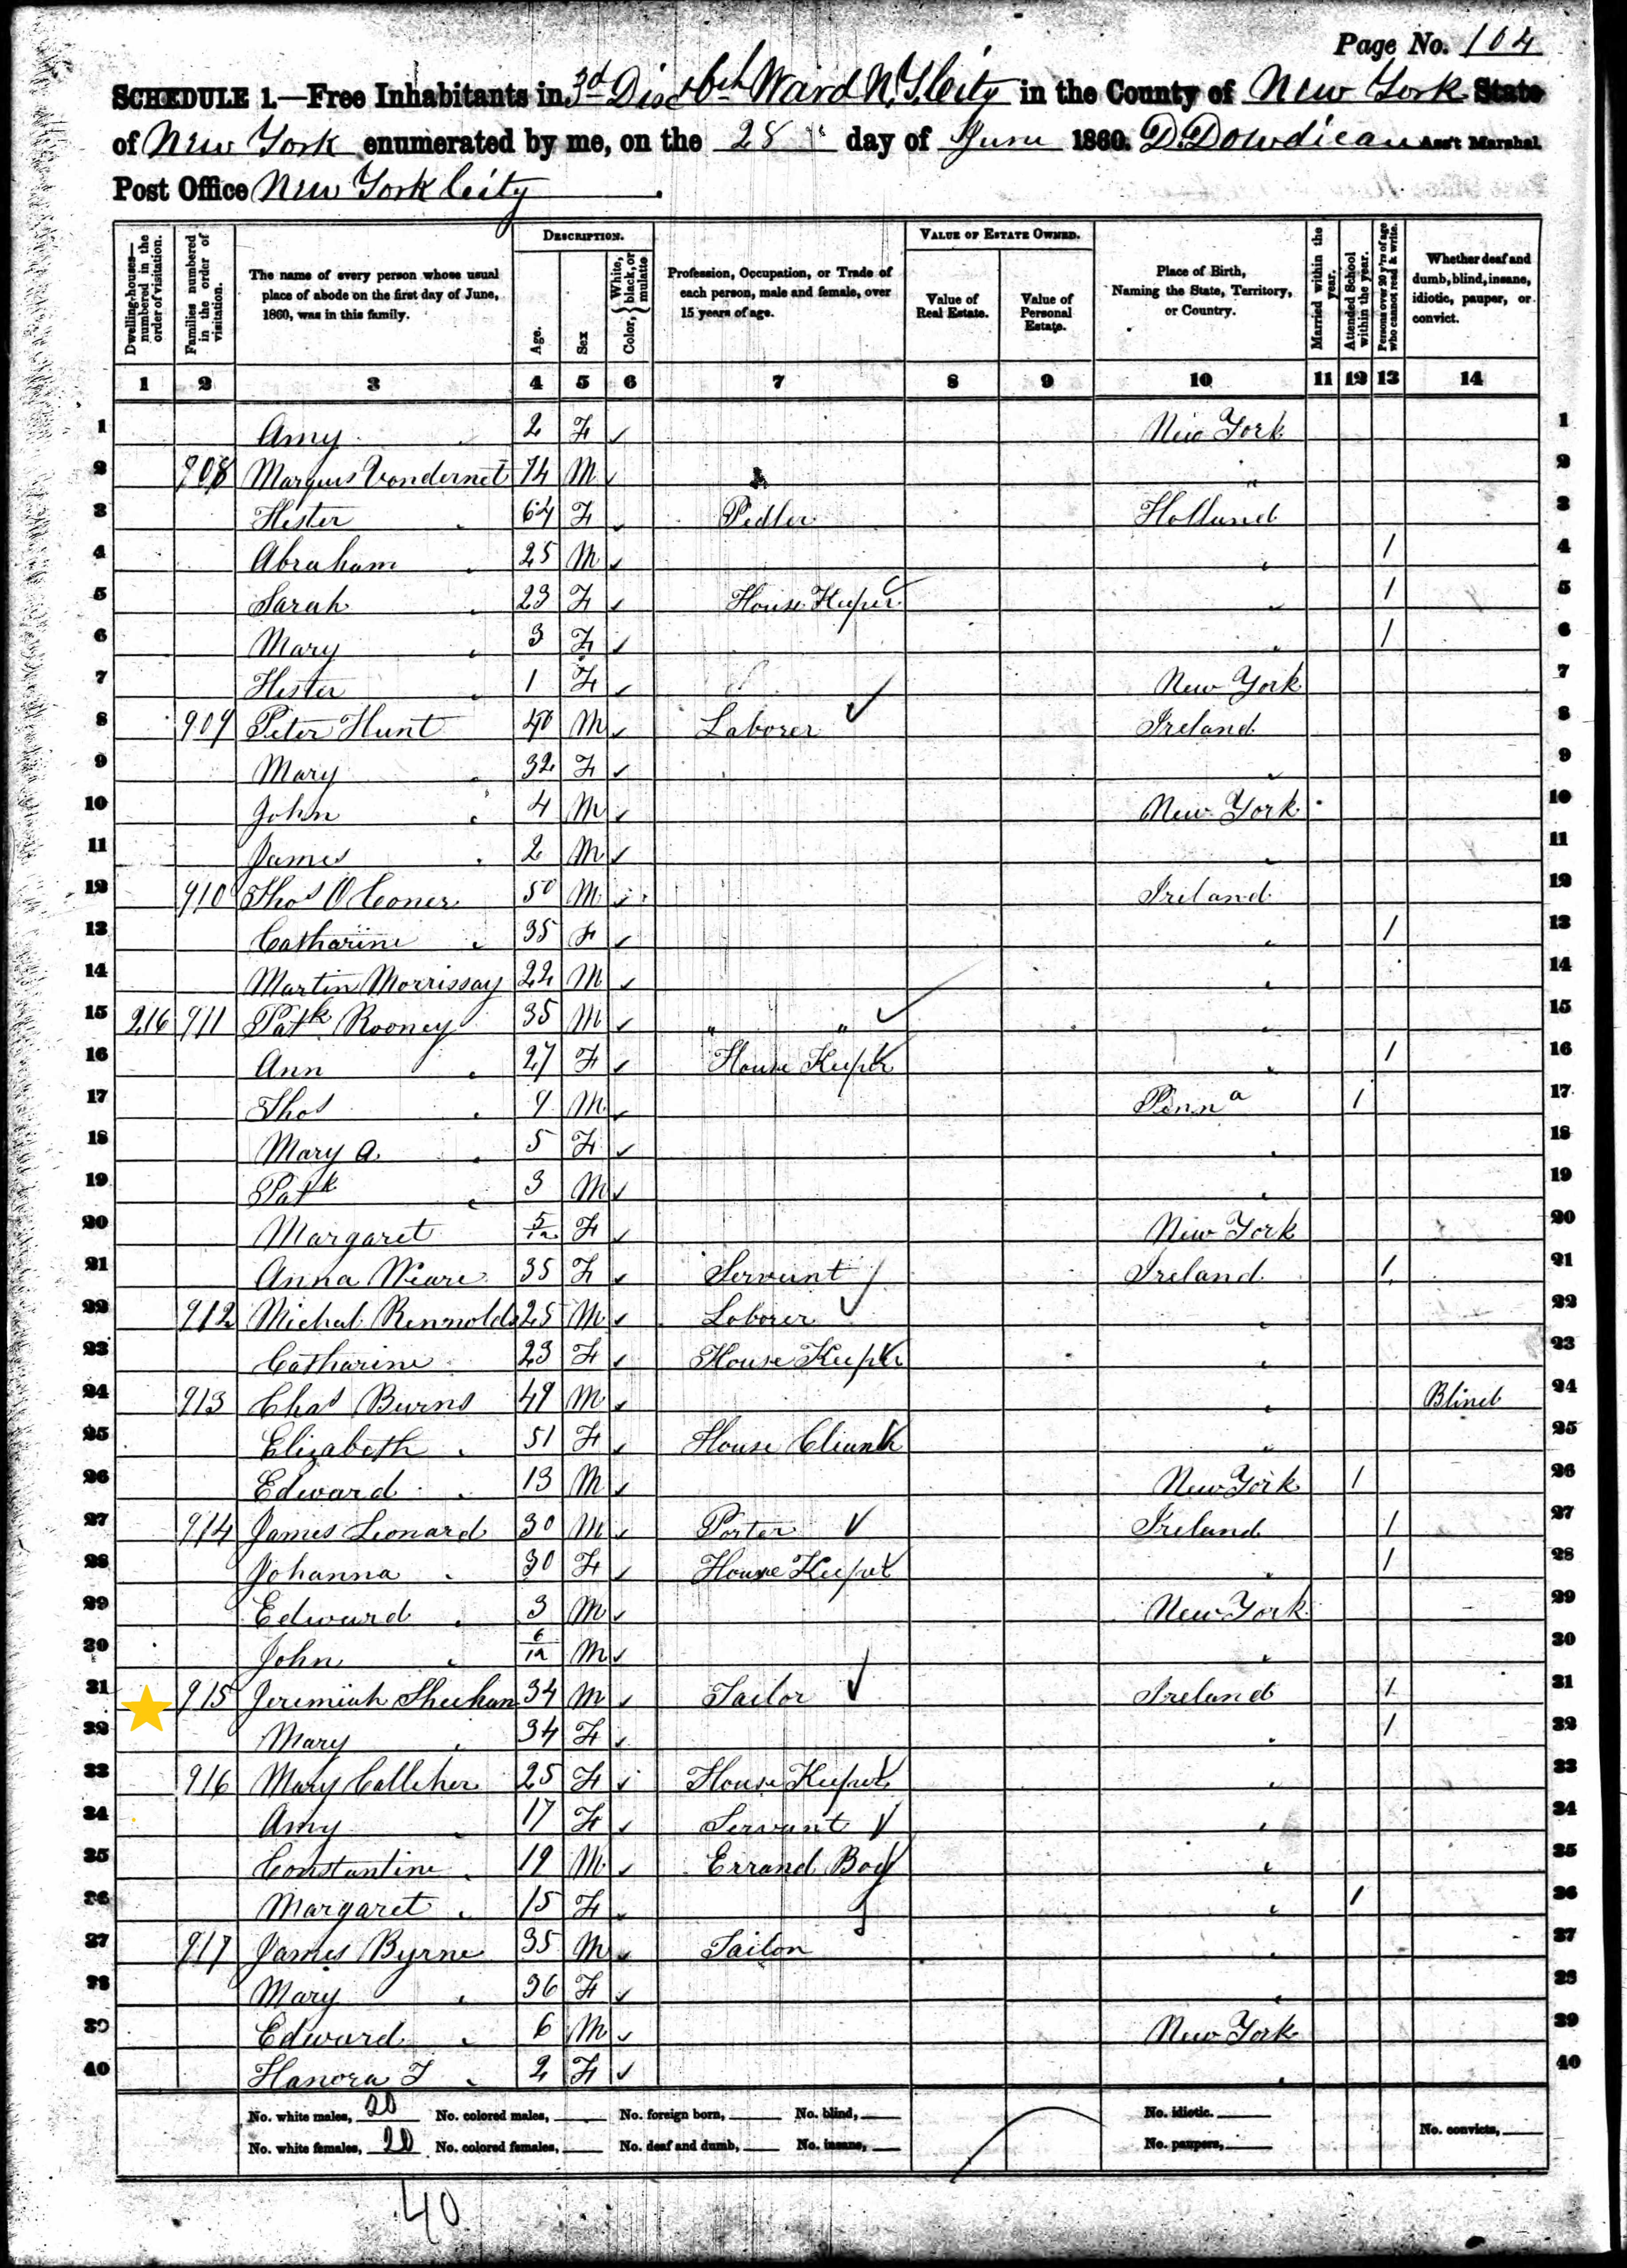 Page No. 104
SCHEDULE 1.—Free Inhabitants in 3d Dis 6th Ward N.Y. City in the County of New York State
of New York enumerated by me, on the 28th day of June 1860. D. Dowdican Ass't Marshal.
Post Office New York City.
Dwelling-houses—numbered in the order of visitation.
Families numbered in the order of visitation.
The name of every person whose usual place of abode on the first day of June, 1860, was in this family.
DESCRIPTION.
Age.
Sex
Color, { White, black, or mulatto
Profession, Occupation, or Trade of each person, male and female, over 15 years of age.
VALUE OF ESTATE OWNED.
Value of Real Estate.
Value of Personal Estate.
Place of Birth, Naming the State, Territory, or Country.
Married within the year.
Attended School within the year.
Persons over 20 y'rs of age who cannot read & write.
Whether deaf and dumb, blind, insane, idiotic, pauper, or convict.
1 2 3 4 5 6 7 8 9 10 11 12 13 14
1 Amy 2 F New York 1
2 908 Marquis Vondernet 74 M " 2
3 Hester " 64 F Pedler Holland 3
4 Abraham " 25 M " / 4
5 Sarah " 23 F House Keeper " / 5
6 Mary " 3 F " / 6
7 Hester " 1 F New York 7
8 909 Peter Hunt 40 M Laborer Ireland 8
9 Mary " 32 F " 9
10 John " 4 M New York 10
11 James " 2 M " 11
12 910 Thos O Coner 50 M Ireland 12
13 Catharine " 35 F " / 13
14 Martin Morrissay 22 M " 14
15 216 911 Patk Rooney 35 M " " " 15
16 Ann " 27 F House Keeper " / 16
17 Thos " 9 M Penna / 17
18 Mary A. " 5 F " 18
19 Patk " 3 M " 19
20 Margaret 5/12 F New York 20
21 Anna Weare 35 F Servant Ireland / 21
22 912 Michal Rennolds 25 M Laborer " 22
23 Catharine 23 F House Keeper " 23
24 913 Chas Burns 49 M " Blind 24
25 Elizabeth " 51 F House Cleank " 25
26 Edward " 13 M New York / 26
27 914 James Leonard 30 M Porter Ireland / 27
28 Johanna " 30 F House Keeper " / 28
29 Edward " 3 M New York 29
30 John " 6/12 M " 30
31 915 Jeremiah Sheehan 34 M Tailor Ireland / 31
32 Mary " 34 F " / 32
33 916 Mary Calleher 25 F House Keeper " 33
34 Amy " 17 F Servant " 34
35 Constantine " 19 M Errand Boy " 35
36 Margaret " 15 F " / 36
37 917 James Byrne 35 M Tailor " 37
38 Mary " 36 F " 38
39 Edward " 6 M New York 39
40 Hanora T " 2 F " 40
No. white males, 20 No. colored males, No. foreign born, No. blind, No. idiotic.
No. white females, 20 No. colored females, No. deaf and dumb, No. insane, No. paupers, No. convicts,
40